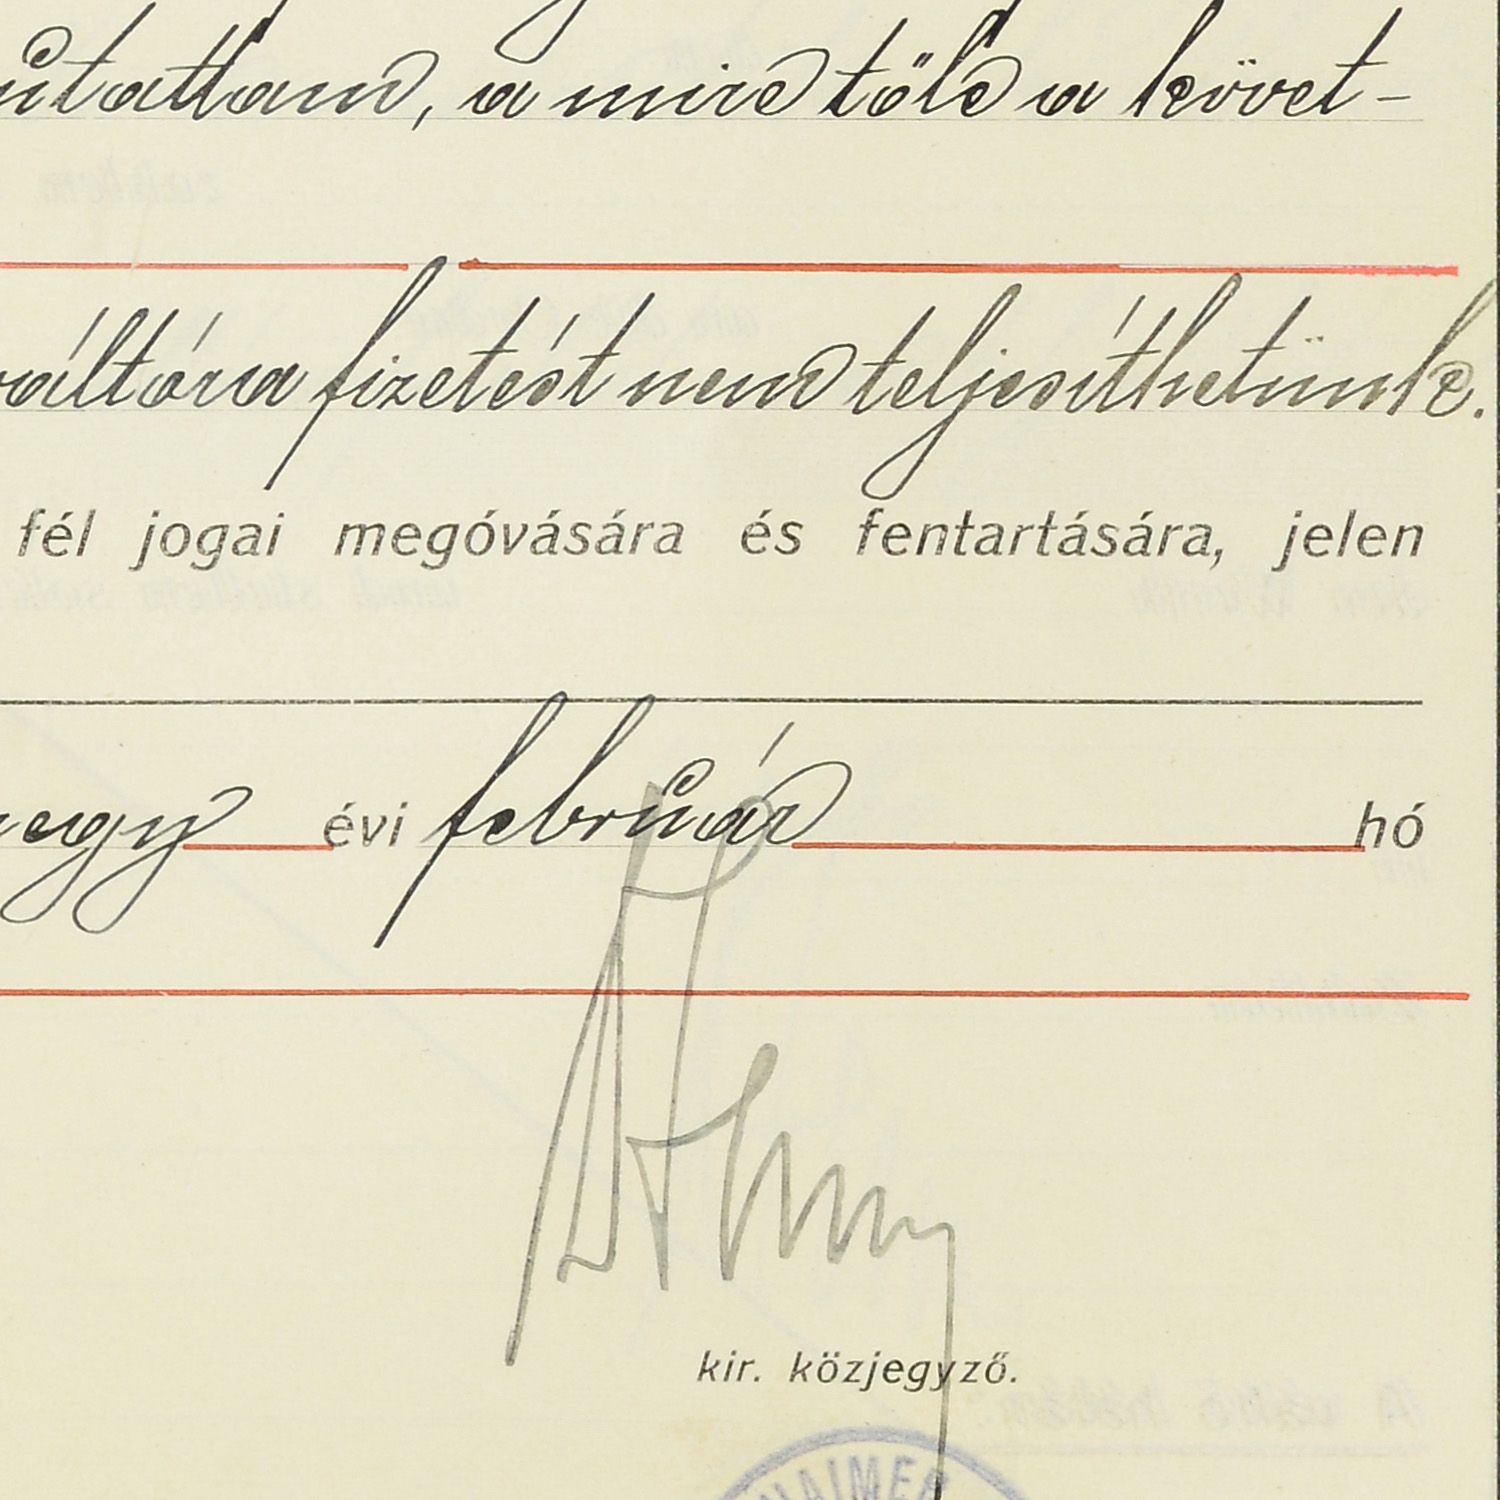 mutattam, a mire tőle a követ-
váltóra fizetést nem teljesíthetünk.
fél jogai megóvására és fentartására, jelen
négy évi február hó
kir. közjegyző.